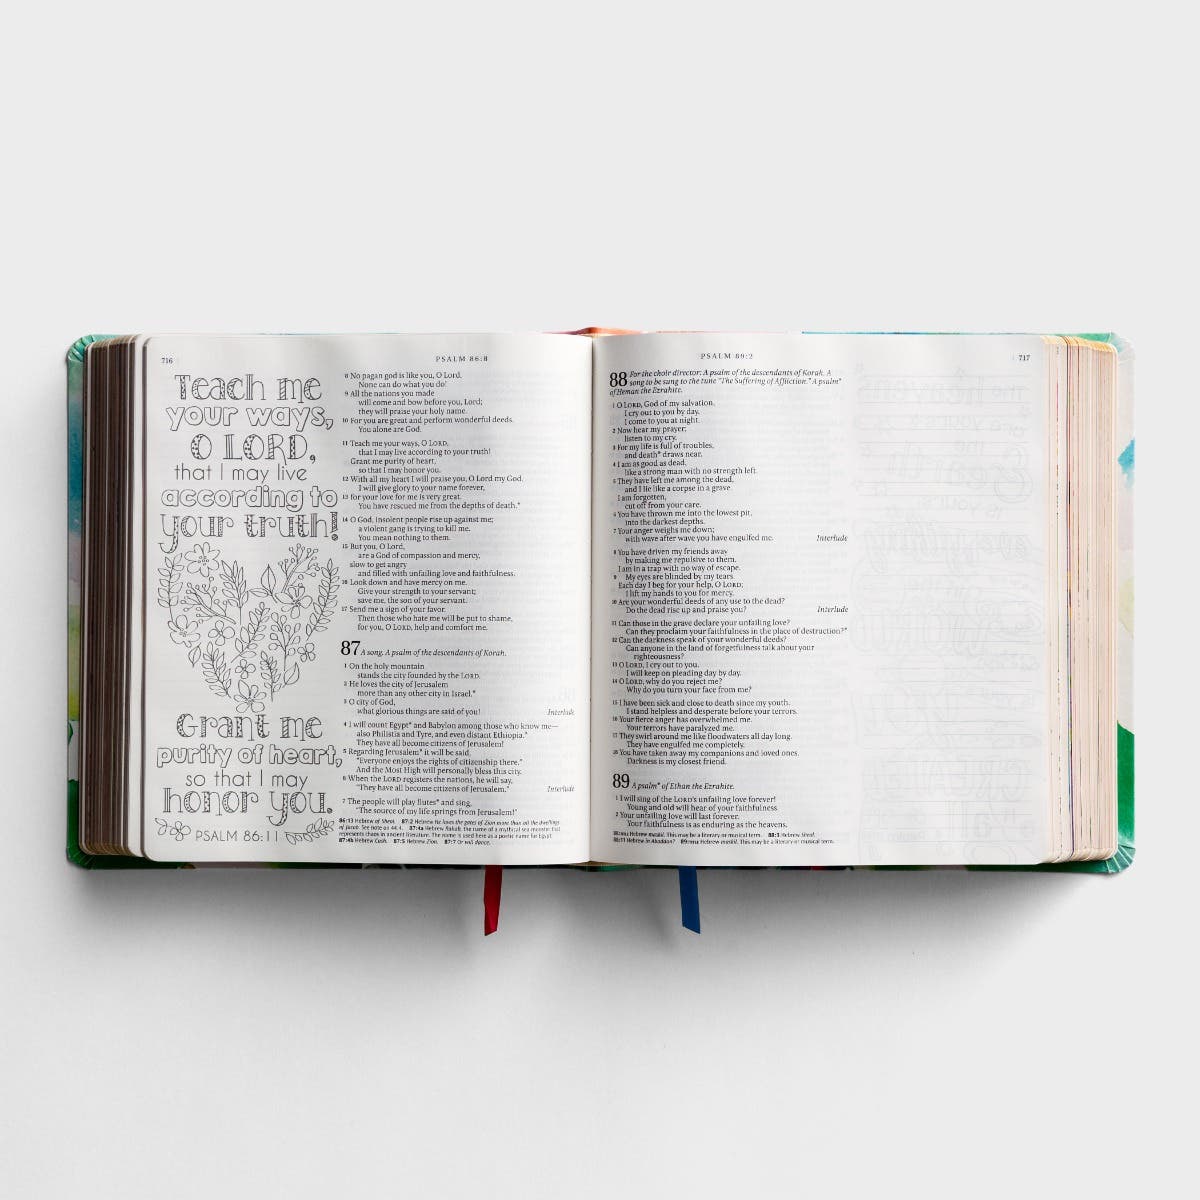 716
PSALM 86:8
Teach me
your ways,
O LORD,
that I may live
according to
your truth!
Grant me
purity of heart,
so that I may
honor you.
PSALM 86:11
8 No pagan god is like you, O Lord.
None can do what you do!
9 All the nations you made
will come and bow before you, Lord;
they will praise your holy name.
10 For you are great and perform wonderful deeds.
You alone are God.
11 Teach me your ways, O LORD,
that I may live according to your truth!
Grant me purity of heart,
so that I may honor you.
12 With all my heart I will praise you, O Lord my God.
I will give glory to your name forever,
13 for your love for me is very great.
You have rescued me from the depths of death.*
14 O God, insolent people rise up against me;
a violent gang is trying to kill me.
You mean nothing to them.
15 But you, O Lord,
are a God of compassion and mercy,
slow to get angry
and filled with unfailing love and faithfulness.
16 Look down and have mercy on me.
Give your strength to your servant;
save me, the son of your servant.
17 Send me a sign of your favor.
Then those who hate me will be put to shame,
for you, O LORD, help and comfort me.
87 A song. A psalm of the descendants of Korah.
1 On the holy mountain
stands the city founded by the LORD.
2 He loves the city of Jerusalem
more than any other city in Israel.*
3 O city of God,
what glorious things are said of you! Interlude
4 I will count Egypt* and Babylon among those who know me—
also Philistia and Tyre, and even distant Ethiopia.*
They have all become citizens of Jerusalem!
5 Regarding Jerusalem* it will be said,
"Everyone enjoys the rights of citizenship there."
And the Most High will personally bless this city.
6 When the LORD registers the nations, he will say,
"They have all become citizens of Jerusalem." Interlude
7 The people will play flutes* and sing,
"The source of my life springs from Jerusalem!"
86:13 Hebrew of Sheol. 87:2 Hebrew He loves the gates of Zion more than all the dwellings
of Jacob. See note on 44:4. 87:4a Hebrew Rahab, the name of a mythical sea monster that
represents chaos in ancient literature. The name is used here as a poetic name for Egypt.
87:4b Hebrew Cush. 87:5 Hebrew Zion. 87:7 Or will dance.
PSALM 89:2
717
88 For the choir director: A psalm of the descendants of Korah. A
song to be sung to the tune "The Suffering of Affliction." A psalm*
of Heman the Ezrahite.
1 O LORD, God of my salvation,
I cry out to you by day.
I come to you at night.
2 Now hear my prayer;
listen to my cry.
3 For my life is full of troubles,
and death* draws near.
4 I am as good as dead,
like a strong man with no strength left.
5 They have left me among the dead,
and I lie like a corpse in a grave.
I am forgotten,
cut off from your care.
6 You have thrown me into the lowest pit,
into the darkest depths.
7 Your anger weighs me down;
with wave after wave you have engulfed me. Interlude
8 You have driven my friends away
by making me repulsive to them.
I am in a trap with no way of escape.
9 My eyes are blinded by my tears.
Each day I beg for your help, O LORD;
I lift my hands to you for mercy.
10 Are your wonderful deeds of any use to the dead?
Do the dead rise up and praise you? Interlude
11 Can those in the grave declare your unfailing love?
Can they proclaim your faithfulness in the place of destruction?*
12 Can the darkness speak of your wonderful deeds?
Can anyone in the land of forgetfulness talk about your
righteousness?
13 O LORD, I cry out to you.
I will keep on pleading day by day.
14 O LORD, why do you reject me?
Why do you turn your face from me?
15 I have been sick and close to death since my youth.
I stand helpless and desperate before your terrors.
16 Your fierce anger has overwhelmed me.
Your terrors have paralyzed me.
17 They swirl around me like floodwaters all day long.
They have engulfed me completely.
18 You have taken away my companions and loved ones.
Darkness is my closest friend.
89 A psalm* of Ethan the Ezrahite.
1 I will sing of the LORD's unfailing love forever!
Young and old will hear of your faithfulness.
2 Your unfailing love will last forever.
Your faithfulness is as enduring as the heavens.
Hebrew maskil. This may be a literary or musical term. 88:3 Hebrew Sheol.
88:11 Hebrew in Abaddon? 89:TITLE Hebrew maskil. This may be a literary or musical term.